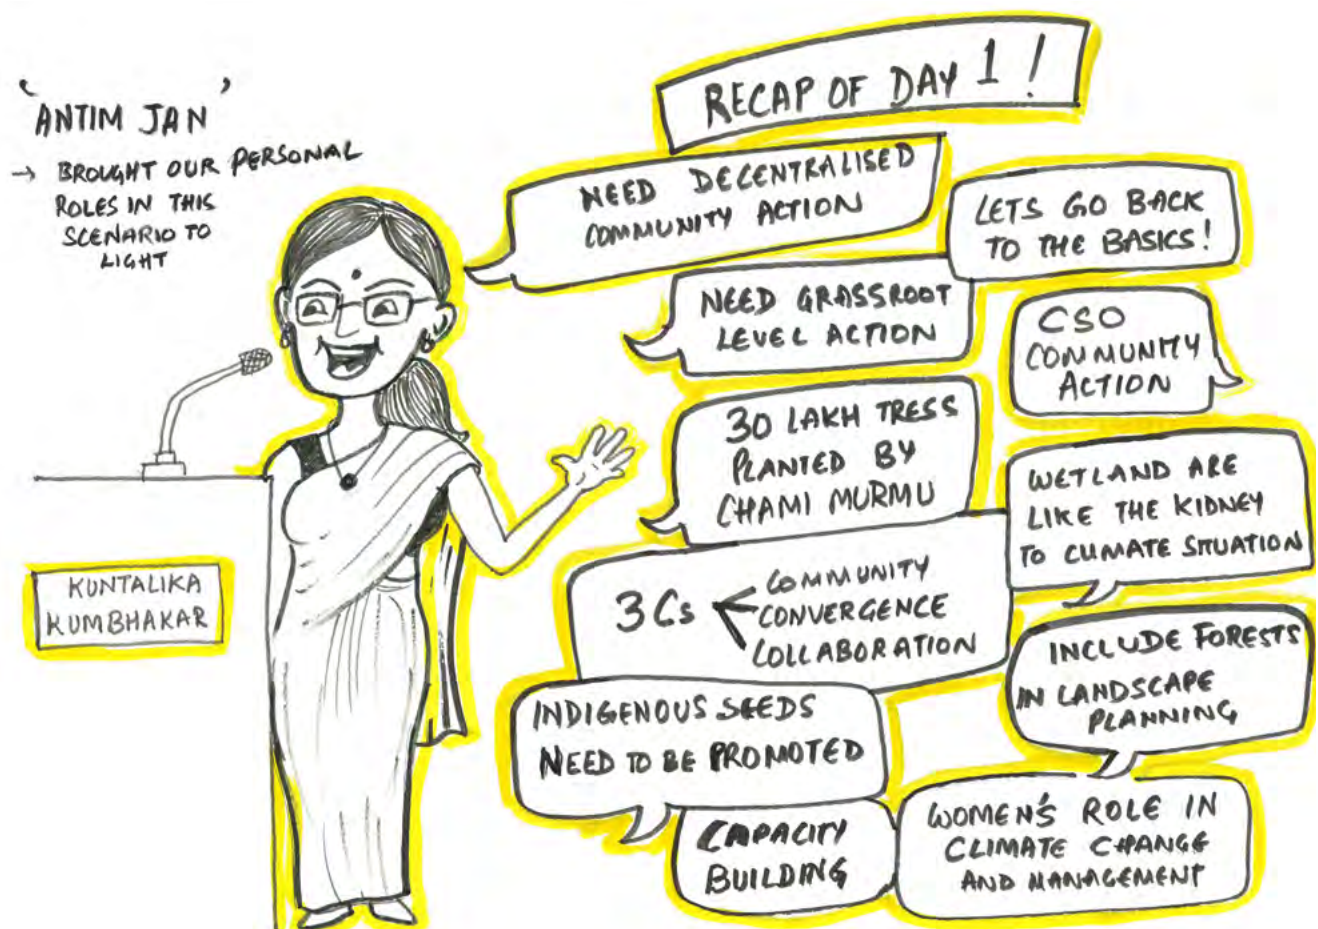 'ANTIM JAN'
→ BROUGHT OUR PERSONAL
ROLES IN THIS
SCENARIO TO
LIGHT
KUNTALIKA
KUMBHAKAR
RECAP OF DAY 1!
NEED DECENTRALISED
COMMUNITY ACTION
LETS GO BACK
TO THE BASICS!
NEED GRASSROOT
LEVEL ACTION
CSO
COMMUNITY
ACTION
30 LAKH TRESS
PLANTED BY
CHAMI MURMU
WETLAND ARE
LIKE THE KIDNEY
TO CLIMATE SITUATION
3Cs
COMMUNITY
CONVERGENCE
COLLABORATION
INCLUDE FORESTS
IN LANDSCAPE
PLANNING
INDIGENOUS SEEDS
NEED TO BE PROMOTED
CAPACITY
BUILDING
WOMEN'S ROLE IN
CLIMATE CHANGE
AND MANAGEMENT